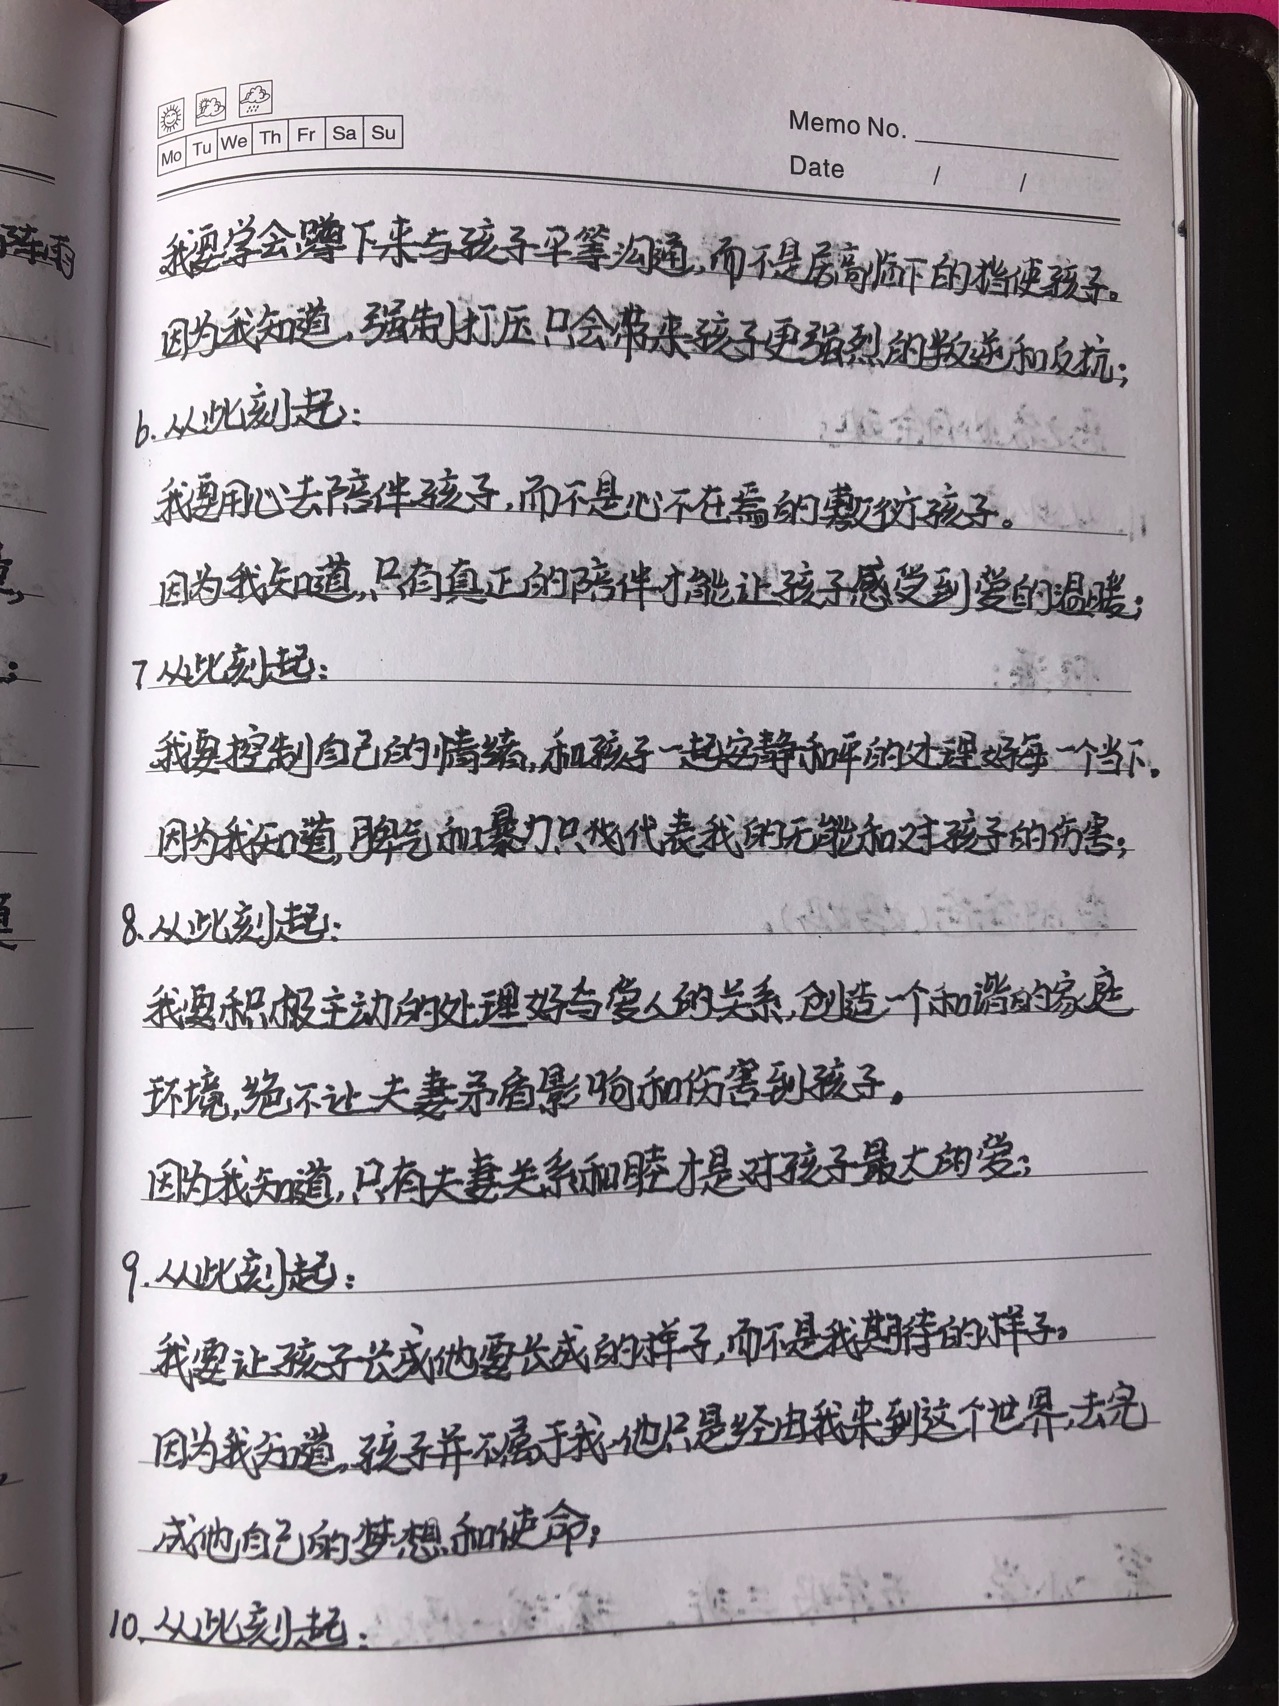 Mo Tu We Th Fr Sa Su
Memo No.
Date / /
我要学会蹲下来与孩子平等沟通,而不是居高临下的指使孩子。
因为我知道,强制打压只会带来孩子更强烈的叛逆和反抗;
6.从此刻起:
我要用心去陪伴孩子,而不是心不在焉的敷衍孩子。
因为我知道,只有真正的陪伴才能让孩子感受到爱的温暖;
7从此刻起:
我要控制自己的情绪,和孩子一起安静和平的处理好每一个当下。
因为我知道,脾气和暴力只代表我的无能和对孩子的伤害;
8.从此刻起:
我要积极主动的处理好与爱人的关系,创造一个和谐的家庭
环境,绝不让夫妻矛盾影响和伤害到孩子。
因为我知道,只有夫妻关系和睦才是对孩子最大的爱;
9.从此刻起:
我要让孩子长成他要长成的样子,而不是我期待的样子。
因为我知道,孩子并不属于我,他只是经由我来到这个世界,去完
成他自己的梦想和使命;
10.从此刻起: